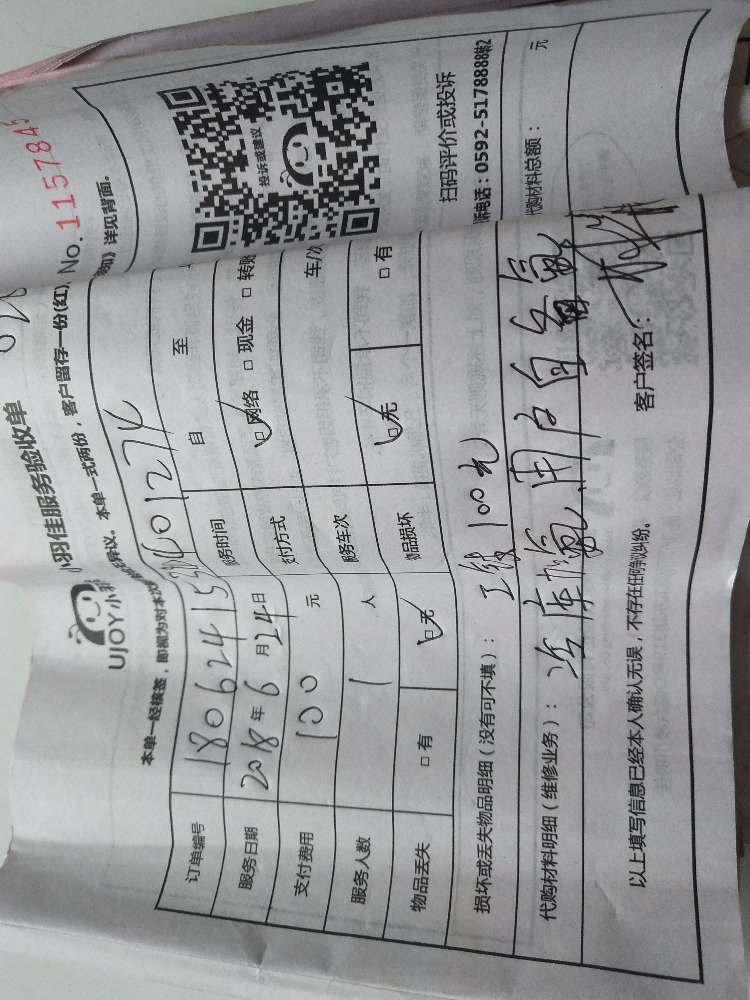 小羽佳服务验收单
No. 1157845
UJOY小羽
本单一经核签，即视为对本次
异议。本单一式两份，客户留存一份(红)
详见背面。
订单编号 180624153401274
服务日期 2018年6月24日 服务时间 自 至
支付费用 100 元 支付方式 ☑网络 □现金 □转账
服务人数 1 人 服务车次 车/次
物品丢失 □有 ☑无 物品损坏 ☑无 □有
投诉或建议
扫码评价或投诉
诉电话：0592-5178888转2
损坏或丢失物品明细（没有可不填）： 工钱100元
代购材料明细（维修业务）： 用户自备氟
代购材料总额： 元
以上填写信息已经本人确认无误，不存在任何争议纠纷。
客户签名：